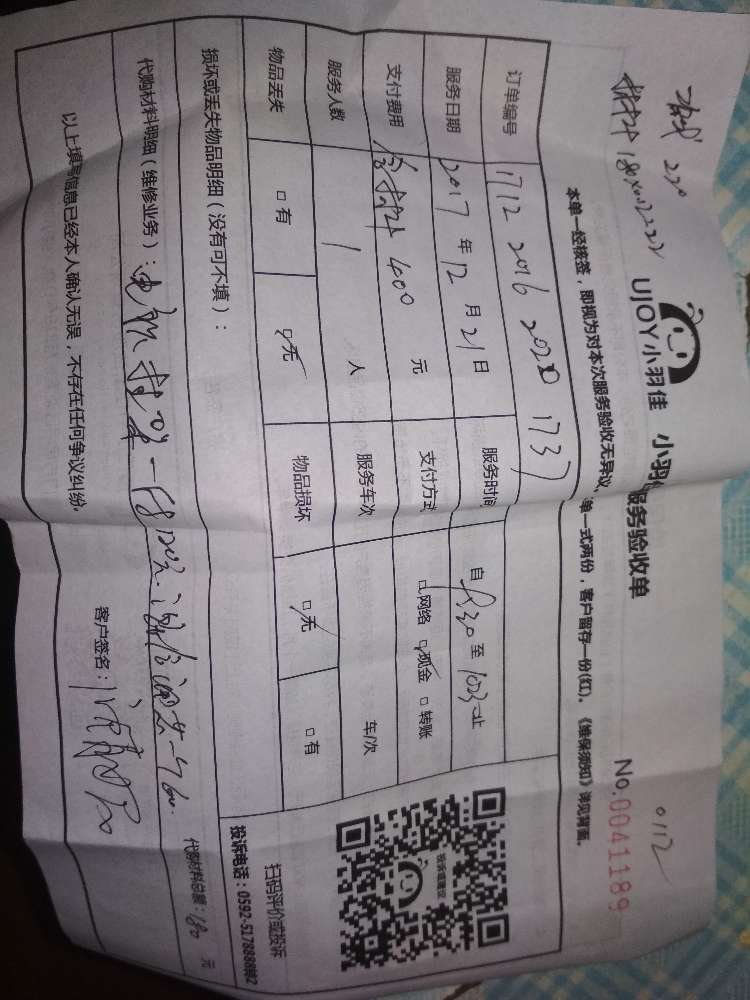 0112
实收 220
材料 180×0.1=222
UJOY小羽佳 小羽佳服务验收单 No.0041189
本单一经核签，即视为对本次服务验收无异议，单一式两份，客户留存一份(红)。《维保须知》详见背面。
订单编号 1712 2016 2020 1737
服务日期 2017 年 12 月 21 日 服务时间 自 930 至 1023 止
支付费用 含材料 400 元 支付方式 □网络 ☑现金 □转账
服务人数 1 人 服务车次 车/次
物品丢失 □有 ☑无 物品损坏 ☑无 □有
损坏或丢失物品明细（没有可不填）：
代购材料明细（维修业务）：
代购材料总额：180 元
以上填写信息已经本人确认无误，不存在任何争议纠纷。
客户签名：
扫码评价或投诉
投诉电话：0592-5178888转2
投诉或建议